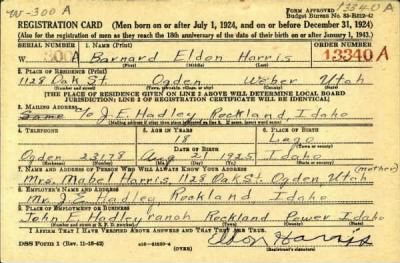 W-300 A
13340 A
FORM APPROVED
Budget Bureau No. 33-R212-42
REGISTRATION CARD (Men born on or after July 1, 1924, and on or before December 31, 1924)
(Also for the registration of men as they reach the 18th anniversary of the date of their birth on or after January 1, 1943.)
SERIAL NUMBER 1. NAME (Print) ORDER NUMBER
W 300 A Barnard Eldon Harris 13340A
(First) (Middle) (Last)
2. PLACE OF RESIDENCE (Print)
1128 Oak St Ogden Weber Utah
(Number and street) (Town, township, village, or city) (County) (State)
[THE PLACE OF RESIDENCE GIVEN ON LINE 2 ABOVE WILL DETERMINE LOCAL BOARD
JURISDICTION; LINE 2 OF REGISTRATION CERTIFICATE WILL BE IDENTICAL]
3. MAILING ADDRESS
Same c/o J.E. Hadley Rockland, Idaho
4. TELEPHONE 5. AGE IN YEARS 6. PLACE OF BIRTH
18 Lago
DATE OF BIRTH
Ogden Aug 1925 Idaho
7. NAME AND ADDRESS OF PERSON WHO WILL ALWAYS KNOW YOUR ADDRESS (mother)
Mrs. Mabel Harris, 1128 Oak St. Ogden Utah
8. EMPLOYER'S NAME AND ADDRESS
Mr. J.E. Hadley Rockland Idaho
9. PLACE OF EMPLOYMENT OR BUSINESS
John E. Hadley ranch Rockland Power Idaho
(Number and street or R. F. D. number) (Town) (County) (State)
I AFFIRM THAT I HAVE VERIFIED ABOVE ANSWERS AND THAT THEY ARE TRUE.
DSS Form 1 (Rev. 11-16-42) (OVER) Eldon Harris